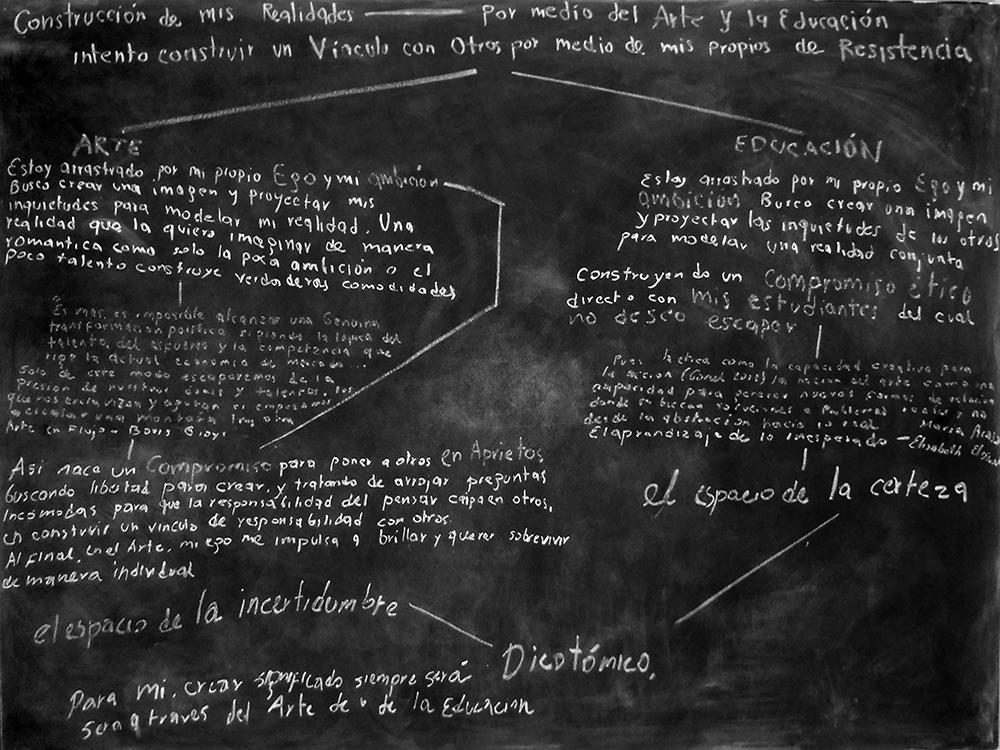 Construcción de mis Realidades —— Por medio del Arte y la Educación
intento construir un Vínculo con Otros por medio de mis propios de Resistencia
ARTE
Estoy arrastrado por mi propio Ego y mi ambición
Busco crear una imagen y proyectar mis
inquietudes para modelar mi realidad. Una
realidad que la quiero imaginar de manera
romantica como solo la poca ambición o el
poco talento construye verdaderas comodidades
Es mas, es imposible alcanzar una Genuina
transformación política siguiendo la lógica del
talento, del esfuerzo y la competencia que
rige la actual economía de mercado...
Solo de este modo escaparemos de la
Presion de nuestros dones y talentos, los
que nos esclavizan y agotan al empujarnos
a escalar una montaña tras otra
Arte en Flujo - Boris
Asi nace un Compromiso para poner a otros en Aprietos
buscando libertad para crear, y tratando de arrojar preguntas
incómodas para que la responsabilidad del pensar caiga en otros,
en construir un vinculo de responsabilidad con otros.
Al Final, en el Arte, mi ego me impulsa a brillar y querer sobrevivir
de manera individual
el espacio de la incertidumbre
EDUCACIÓN
Estoy arrastrado por mi propio Ego y mi
ambición Busco crear una imagen
y proyectar las inquietudes de los otros
para modelar una realidad conjunta
Construyendo un Compromiso ético
directo con mis estudiantes del cual
no deseo escapar
Pues la ética como la capacidad creativa para
la accion la nocion del arte como una
capacidad para generar nuevas formas de relación
donde se buscan soluciones a problemas reales y no
desde la abstracción hacia lo real María
El aprendizaje de lo inesperado - Elizabeth
el espacio de la certeza
Dicotómico,
Para mi, crear significado siempre será
sera a traves del Arte de de la Educacion